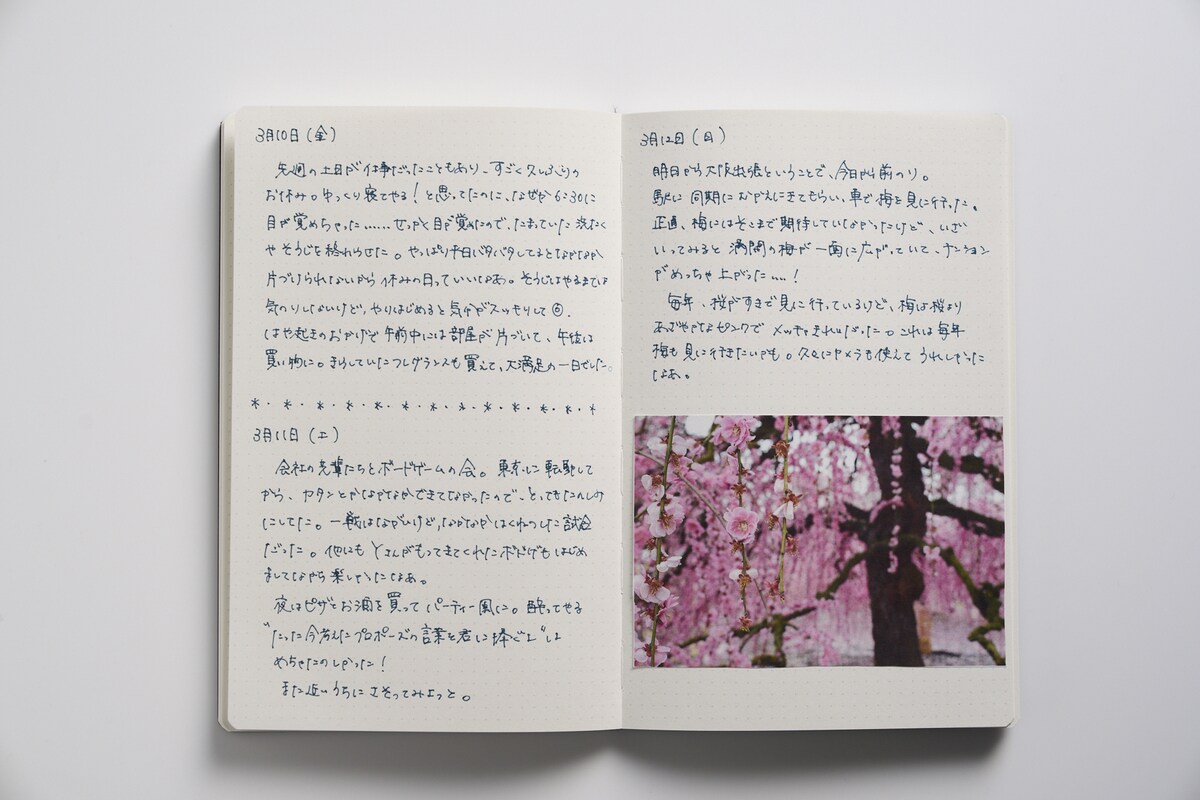 3月10日(金)
先週の土日が仕事だったこともあり、すごく久しぶりの
お休み。ゆっくり寝てやる!と思ってたのに、なぜか6:30に
目が覚めちゃった……せっかく目が覚めたので、たまっていた洗たく
やそうじを終わらせた。やっぱり平日バタバタしてるとなかなか
片づけられないから休みの日っていいなあ。そうじはやるまでは
気のりしないけど、やりはじめると気分がスッキリして◎.
はや起きのおかげで午前中には部屋が片づいて、午後は
買い物に。きらしていたフレグランスも買えて、大満足の一日でした。
*・*・*・*・*・*・*・*・*・*・*・*・*
3月11日(土)
会社の先輩たちとボードゲームの会。東京に転勤して
から、カタンとかなかなかできてなかったので、とってもたのしみ
にしてた。一戦はながいけど、なかなかはくねつした試合
だった。他にもYさんがもってきてくれたボドゲもはじめ
ましてながら楽しかったなあ。
夜はピザとお酒を買ってパーティー風に。酔ってやる
"たった今考えたプロポーズの言葉を君に捧ぐよ"は
めちゃたのしかった!
また近いうちにさそってみよっと。
3月12日(日)
明日から大阪出張ということで、今日から前のり。
駅に同期におむかえにきてもらい、車で梅を見に行った。
正直、梅にはそこまで期待していなかったけど、いざ
いってみると満開の梅が一面に広がっていて、テンション
がめっちゃ上がった…!
毎年、桜がすきで見に行っているけど、梅は桜より
あざやかなピンクでメッチャきれいだった。これは毎年
梅も見に行きたいかも。久々にカメラも使えてうれしかった
なあ。